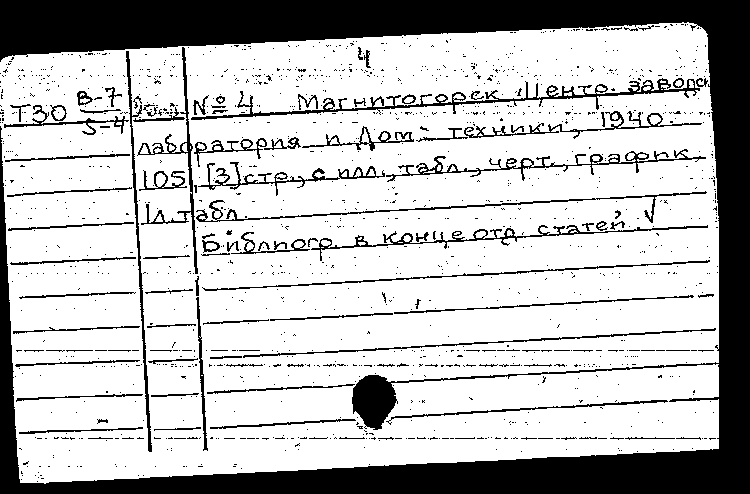 4
Т30 В-7/5-4 № 4 Магнитогорск, Центр. заводск.
лаборатория и Дом техники, 1940.
105, [3] стр., с илл., табл., черт., график.,
1 л. табл.
Библиогр. в конце отд. статей. √